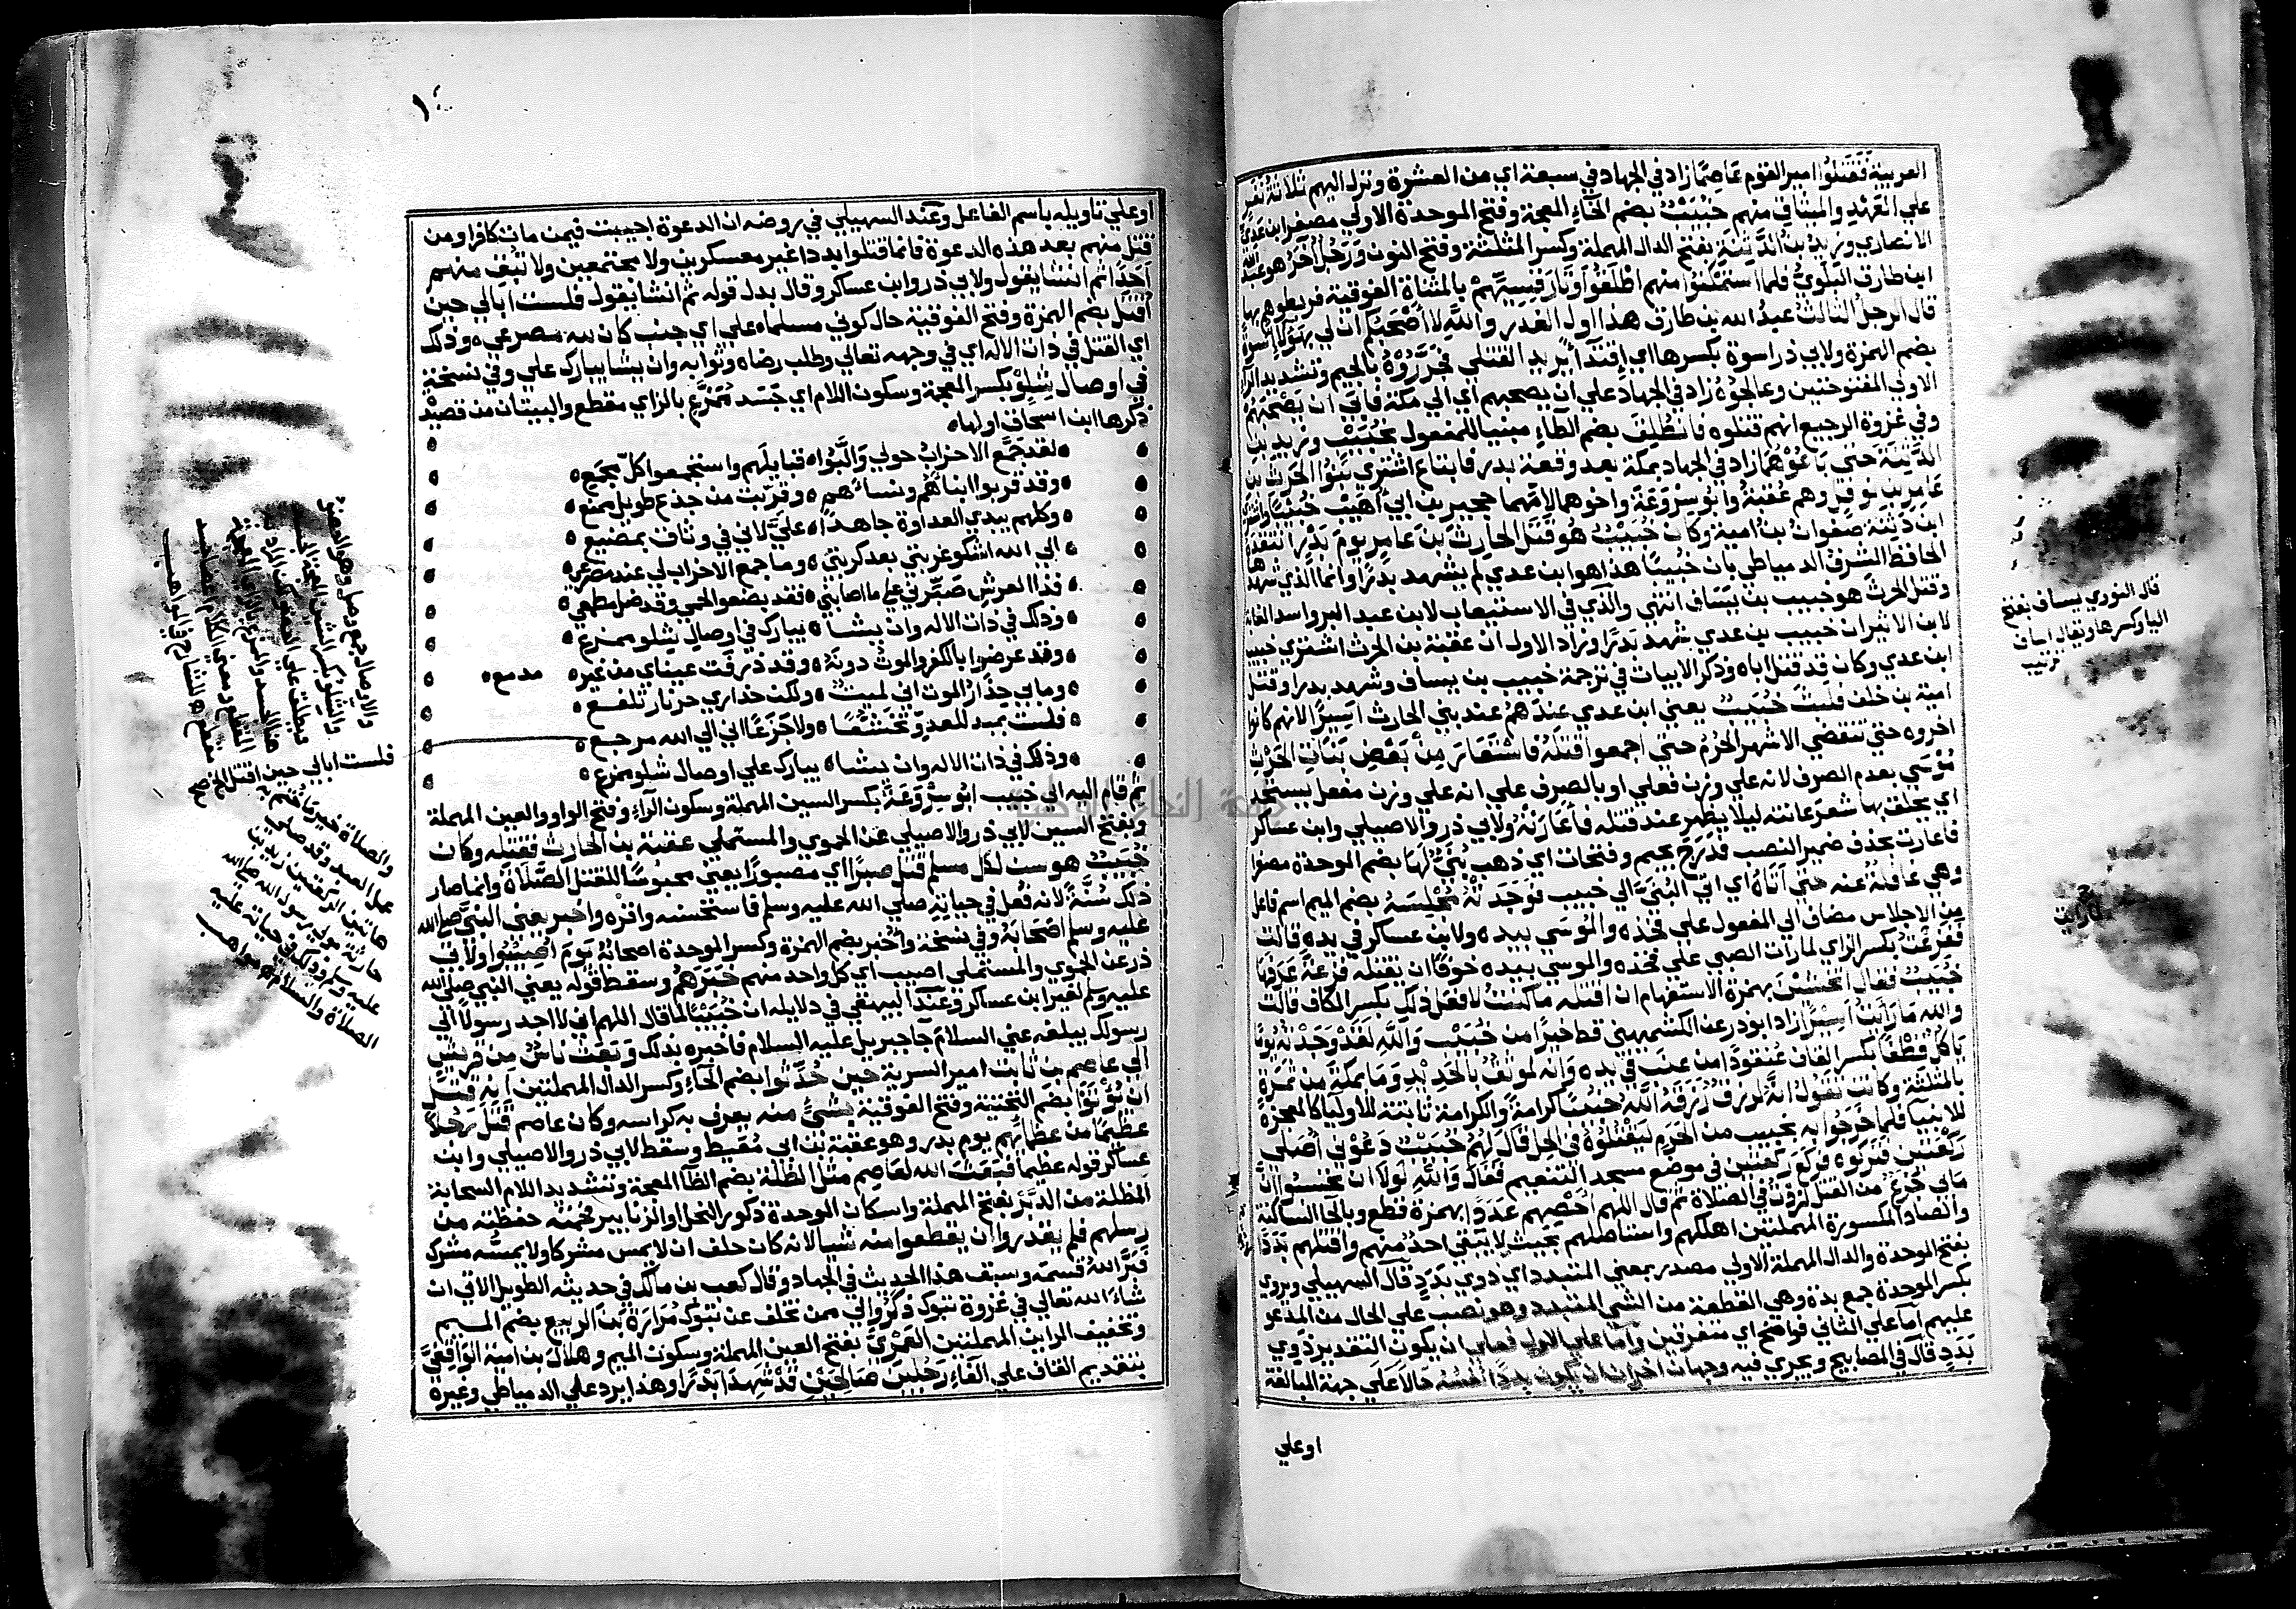 العربية فقتلوا امير القوم عاصما زاد في الجهاد في سبعة اي من العشرة ونزل اليهم ثلاثة نفر
علي العهد والميثاق منهم خبيب بضم الخاء المعجمة وفتح الموحدة الاولي مصغرا ابن عدي
الانصاري وزيد بن الدثنة بفتح الدال المهملة وكسر المثلثة وفتح النون ورجل اخر هو عبد الله
ابن طارق البلوي فلما استمكنوا منهم اطلقوا اوتار قسيهم بالمثناة الفوقية فربطوهم بها
قال الرجل الثالث عبد الله بن طارق هذا اول الغدر والله لا اصحبكم ان لي بهولاء اسوة
بضم الهمزة ولابي ذر اسوة بكسرها اي اقتدا يريد القتلي فجرروه بالجيم وتشديد الراء
الاولي المفتوحتين وعالجوه زاد في الجهاد علي ان يصحبهم اي الي مكة فابي ان يصحبهم
وفي غزوة الرجيع انهم قتلوه فانطلق بضم الطاء مبنيا للمفعول بخبيب وزيد بن
الدثنة حتي باعوهما زاد في الجهاد بمكة بعد وقعة بدر فابتاع اشتري بنوا الحرث بن
عامر بن نوفل وهم عقبة وابو سروعة واخوهما لامهما حجير بن ابي اهيب خبيبا واشتري
ابن دثنة صفوان بن امية وكان خبيب هو قتل الحارث بن عامر يوم بدر انتقده
الحافظ الشرف الدمياطي بان خبيبا هذا هو ابن عدي لم يشهد بدرا وانما الذي شهدها
وقتل الحرث هو خبيب بن يساف انتهي والذي في الاستيعاب لابن عبد البر واسد الغابة
لابن الاثير ان خبيب بن عدي شهد بدرا وزاد الاول ان عقبة بن الحرث اشتري خبيب
ابن عدي وكان قد قتل اباه وذكر الابيات في ترجمة خبيب بن يساف وشهد بدرا وقتل
امية بن خلف فلبث خبيب يعني ابن عدي عندهم عند بني الحارث اسيرا لانهم كانوا
اخروه حتي تنقضي الاشهر الحرم حتي اجمعوا قتله فاستعار من بعض بنات الحرث
موسي بعدم الصرف لانه علي وزن فعلي او بالصرف علي انه علي وزن مفعل يستحد
اي يحلق بها شعر عانته ليلا يظهر عند قتله فاعارته ولابي ذر والاصيلي وابن عساكر
فاعارت بحذف ضمير النصب فدرج بجيم وفتحات اي ذهب بني لها بضم الموحدة مصغرا
وهي غافلة عنه حتي اتاه اي اتي البني الي خبيب فوجدته مجلسه بضم الميم اسم فاعل
من الاجلاس مضاف الي المفعول علي فخذه والموسي بيده ولابن عساكر في يده قالت
ففزعت بكسر الزاي لما رات الصبي علي فخذه والموسي بيده خوفا ان يقتله فزعة عرفها
خبيب فقال اتخشين بهمزة الاستفهام ان اقتله ما كنت لافعل ذلك بكسر الكاف قالت
والله ما رايت اسيرا زاد ابو ذر عن الكشميهني قط خيرا من خبيب والله لقد وجدته يوما
ياكل قطفا بكسر القاف عنقودا من عنب في يده وانه لموثق بالحديد وما بمكة من ثمرة
بالمثلثة وكانت تقول انه لرزق رزقه الله خبيبا كرامة والكرامة ثابتة للاوليا كالمعجزة
للانبيا فلما خرجوا به بخبيب من الحرم ليقتلوه في الحل قال لهم خبيب دعوني اصلي
ركعتين فتركوه فركع ركعتين في موضع مسجد التنعيم فقال والله لولا ان تحسبوا ان
ما بي جزع من القتل لزدت في الصلاة ثم قال اللهم احصهم عددا بهمزة قطع وبالحا الساكنة
والصاد المكسورة المهملتين اهلكهم واستاصلهم بحيث لا يبقي احد منهم واقتلهم بددا
بفتح الموحدة والدال المهملة الاولي مصدر بمعني المتبدد اي ذوي بدد قال السهيلي ويروي
بكسر الموحدة جمع بدة وهي القطعة من الشي المتبدد وهو نصب علي الحال من المدعو
عليهم اما علي الثاني فواضح اي متفرقين واما علي الاول فعلي ان يكون التقدير ذوي
بدد قال في المصابيح ويجري فيه وجهان اخران ان يكون بددا نفسه حالا علي جهة المبالغة
او علي
قال النوري يساف بفتح
اليا وكسرها ويقال اساف
ترتيب
او علي تاويله باسم الفاعل وعند السهيلي في روضه ان الدعوة اجيبت فيمن مات كافرا ومن
قتل منهم بعد هذه الدعوة فانما قتلوا بددا غير معسكرين ولا مجتمعين ولا تبق منهم
احدا ثم انشا يقول ولابي ذر وابن عساكر وقال بدل قوله ثم انشا يقول فلست ابالي حين
اقتل بضم الهمزة وفتح الفوقية حال كوني مسلما ه علي اي جنب كان لله مصرعي ه وذلك
اي القتل في ذات الاله اي في وجهه تعالي وطلب رضاه وثوابه وان يشا يبارك علي وفي نسخة
في اوصال شلو بكسر المعجمة وسكون اللام اي جسد ممزع بالزاي مقطع والبيتان من قصيدة
ذكرها ابن اسحاق اولها ه
لقد جمع الاحزاب حولي والبوا ه قبايلهم واستجمعوا كل مجمع ه
وقد قربوا ابناهم ونساءهم ه وقربت من جذع طويل ممنع ه
وكلهم يبدي العداوة جاهدا ه علي لاني في وثاق بمضيع ه
الي الله اشكو غربتي بعد كربتي ه وما جمع الاحزاب لي عند مصرعي ه
فذا العرش صبرني علي ما اصابني ه فقد بضعوا لحمي وقد ضل مطمعي ه
وذلك في ذات الاله وان يشا ه يبارك في اوصال شلو ممزع ه
وقد عرضوا بالكفر والموت دونه ه وقد ذرفت عيناي من غير ه مدمع ه
وما بي حذار الموت اني لميت ه ولكن حذاري حر نار تلفع ه
فلست بمبد للعدو تخشعا ه ولا جزعا اني الي الله مرجعي ه
وذلك في ذات الاله وان يشا ه يبارك علي اوصال شلو ممزع ه
ثم قام اليه الي خبيب ابو سروعة بكسر السين المهملة وسكون الراء وفتح الواو والعين المهملة
وبفتح السين لابي ذر والاصيلي عن الحموي والمستملي عقبة بن الحارث فقتله وكان
خبيب هو سن لكل مسلم قتل صبرا اي مصبورا يعني محبوسا للقتل الصلاة وانما صار
ذلك سنة لانه فعل في حياته صلي الله عليه وسلم فاستحسنه واقره واخبر يعني النبي صلي الله
عليه وسلم اصحابه وفي نسخة واخبر بضم الهمزة وكسر الموحدة اصحابه يوم اصيبوا ولابي
ذر عن الحموي والمستملي اصيب اي كل واحد منهم خبرهم وسقط قوله يعني النبي صلي الله
عليه وسلم لغير ابن عساكر وعند البيهقي في دلايله ان خبيبا لما قال اللهم اني لا اجد رسولا الي
رسولك يبلغه عني السلام جا جبريل عليه السلام فاخبره بذلك وبعث ناس من قريش
الي عاصم بن ثابت امير السرية حين حدثوا بضم الحاء وكسر الدال المهملتين انه قتل
ان يوتوا بضم التحتية وفتح الفوقية بشي منه يعرف به كراسه وكان عاصم قتل رجلا
عظيما من عظمائهم يوم بدر وهو عقبة بن ابي معيط وسقط لابي ذر والاصيلي وابن
عساكر قوله عظيما فبعث الله لعاصم مثل الظلة بضم الظا المعجمة وتشديد اللام السحابة
المظلة من الدبر بفتح المهملة واسكان الموحدة ذكور النحل او الزنابير فحمته حفظته من
رسلهم فلم يقدروا ان يقطعوا منه شيا لانه كان حلف ان لا يمس مشركا ولا يمسه مشرك
فبر الله قسمه وسبق هذا الحديث في الجهاد وقال كعب بن مالك في حديثه الطويل الاتي ان
شاء الله تعالي في غزوة تبوك ذكروا لي ممن تخلف عن تبوك مرارة بن الربيع بضم الميم
وتخفيف الراين المهملتين العمري بفتح العين المهملة وسكون الميم وهلال بن امية الواقفي
بتقديم القاف علي الفاء رجلين صالحين قد شهدا بدرا وهذا يرد علي الدمياطي وغيره
والاوصال جمع وصل وهو العضو
والشلو بكسر الشين المعجمة الجسد
فلست ابالي حين اقتل الخ صح
والصلاة خير ما ختم به
عمل العبد وقد صلي
هاتين الركعتين زيد بن
حارثة مولي رسول الله صلي الله
عليه وسلم وذلك في حياته عليه
الصلاة والسلام مواهب